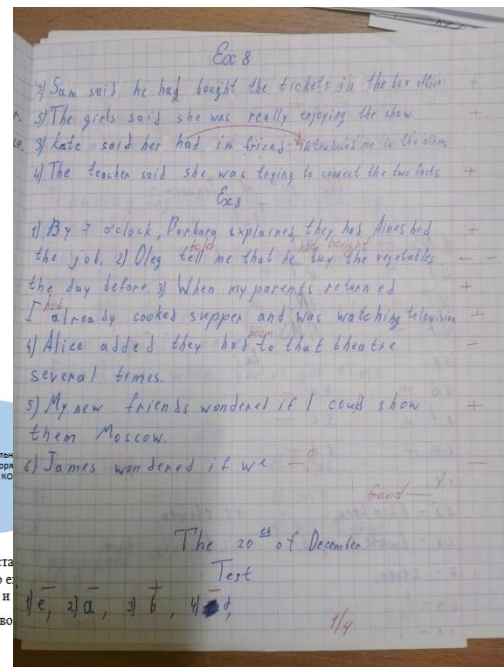 Ex 8
2) Sam said he had bought the tickets in the box office +
5) The girls said she was really enjoying the show. +
3) Kate said her had in friend introduced me to the others
4) The teacher said she was trying to connect the two facts +
Ex 8
1) By 7 o'clock, Barbara explained they had fineshed +
the job. 2) Oleg tell me that he buy the vegetables - -
told had bought
the day before. 3) When my parents returned +
I had already cooked supper and was watching television +
4) Alice added they had been to that theatre -
several times.
5) My new friends wondered if I could show +
them Moscow.
6) James wondered if we - ?!
Good -
The 20th of December
Test
1) e, 2) a, 3) b, 4) d,
- - + -
1/4